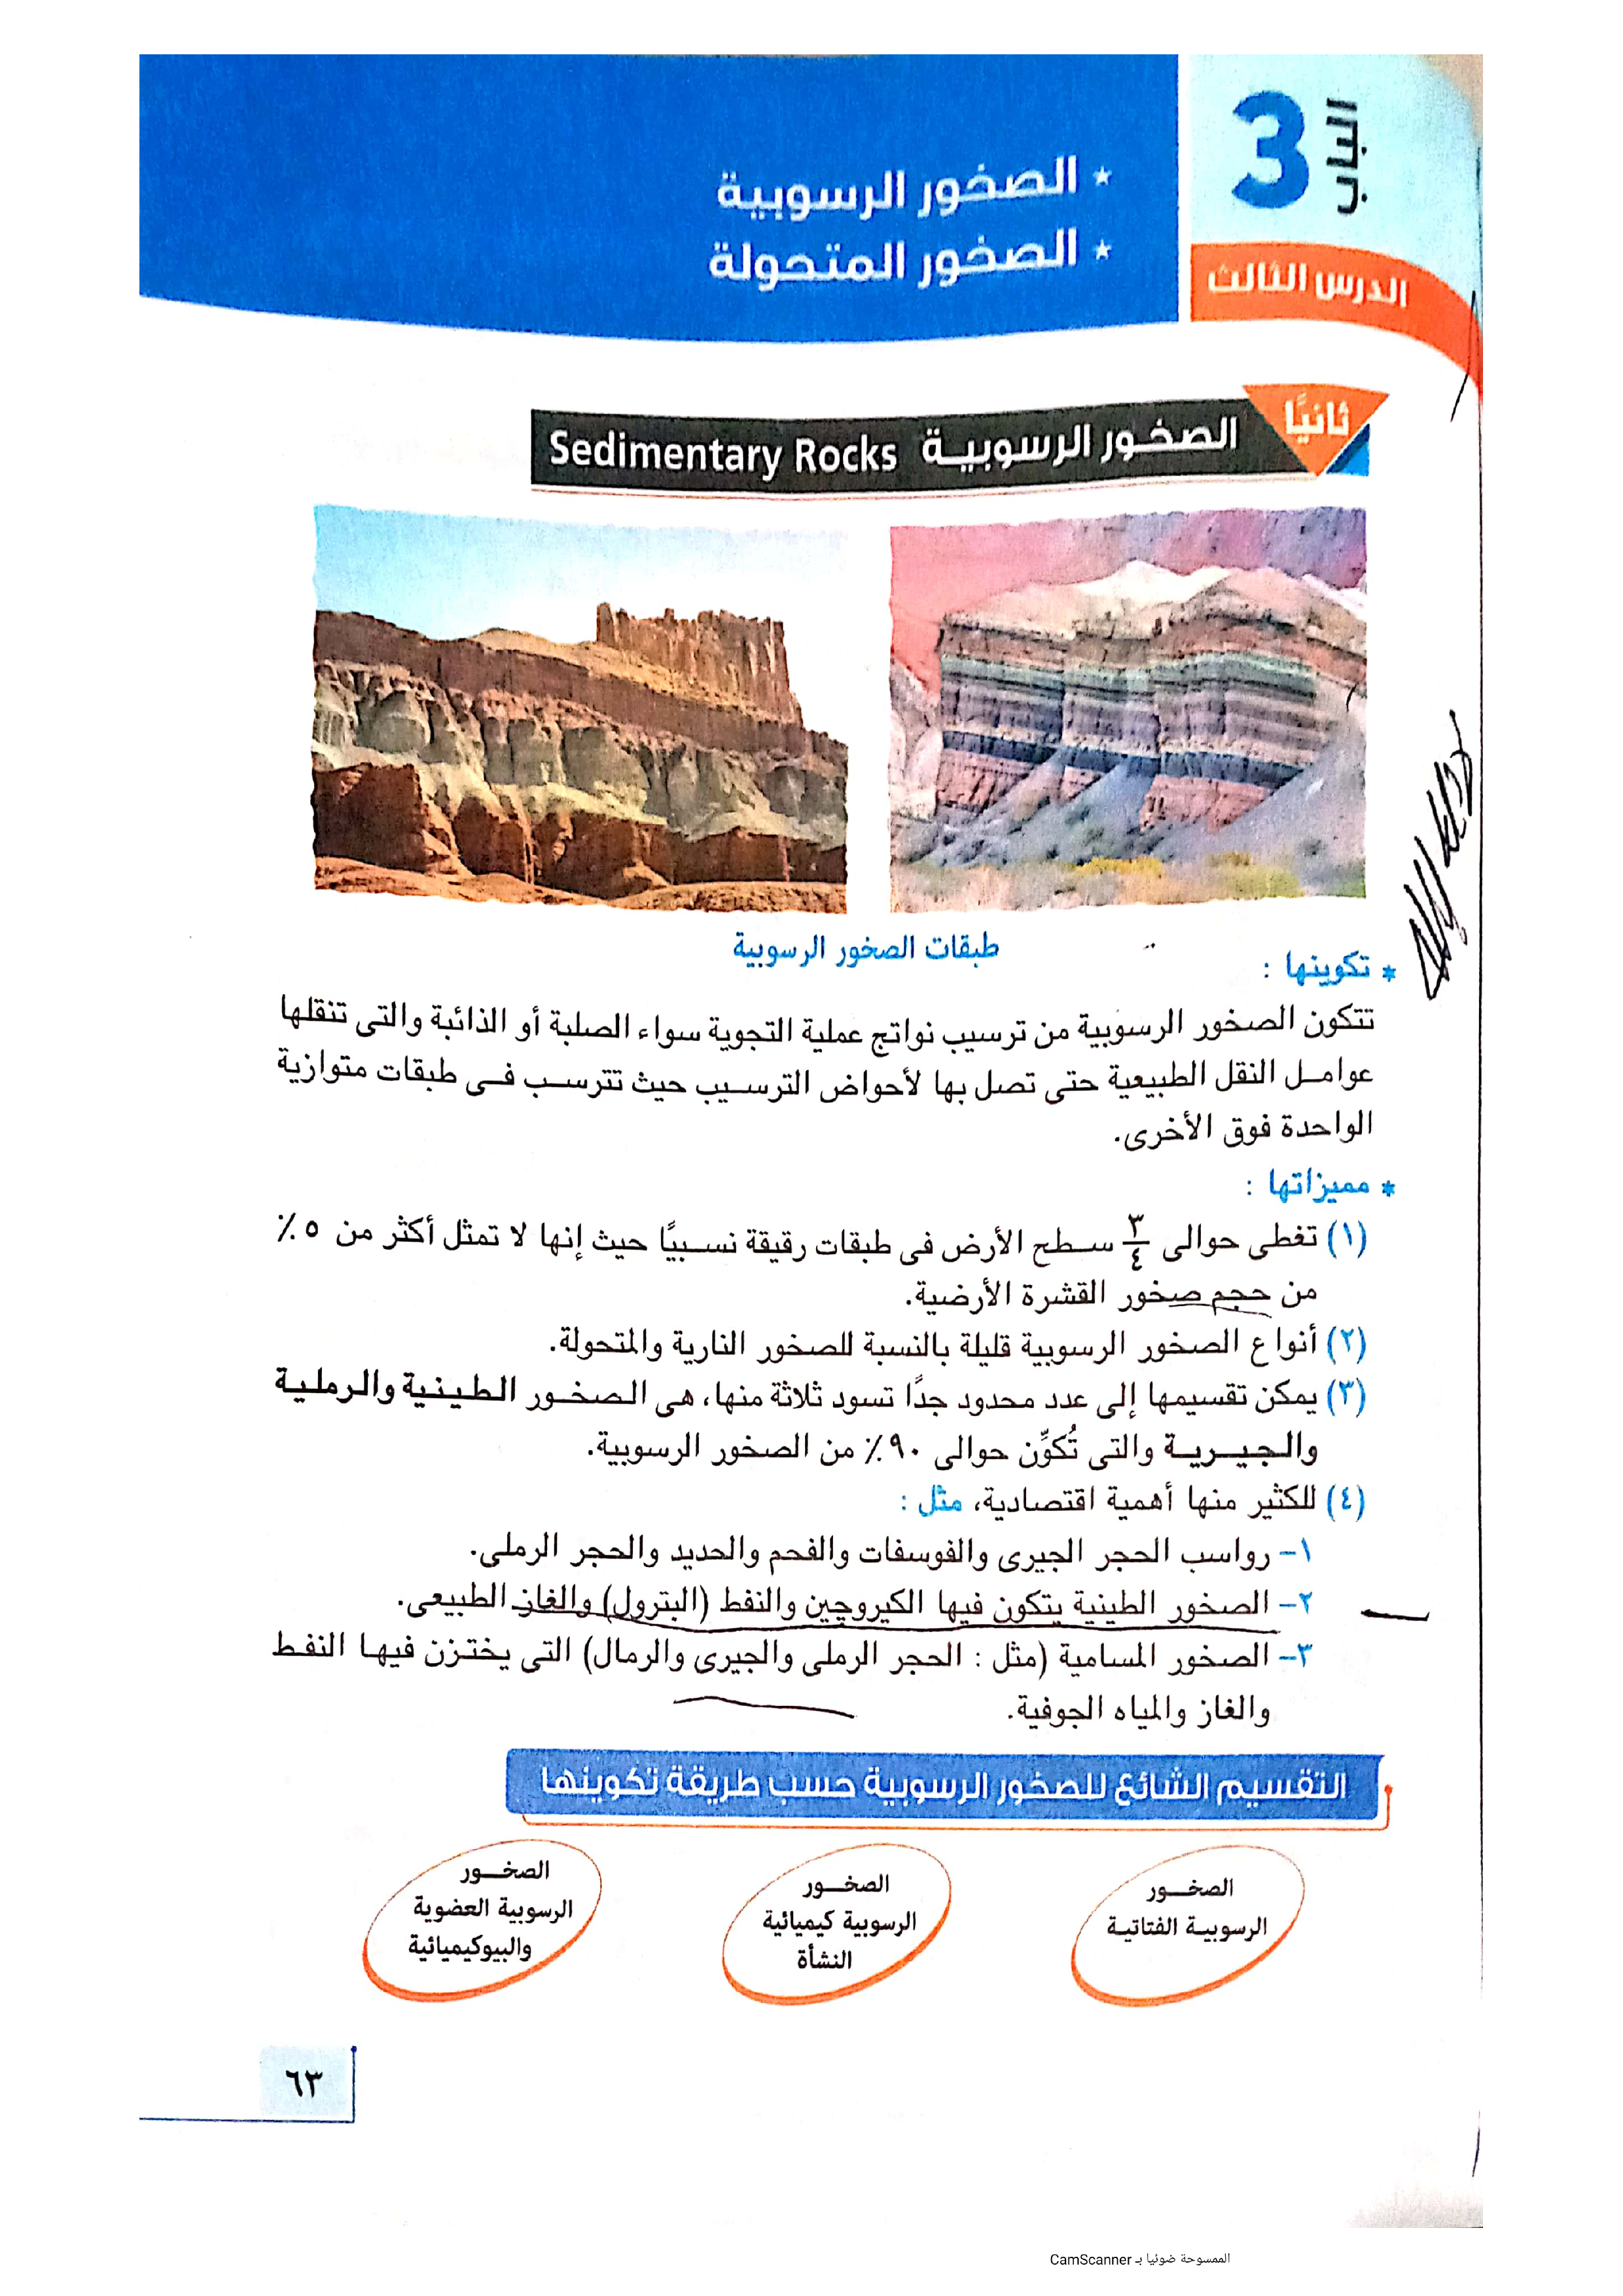 الباب 3
الدرس الثالث
* الصخور الرسوبية
* الصخور المتحولة
ثانيًا
الصخور الرسوبية Sedimentary Rocks
طبقات الصخور الرسوبية
* تكوينها :
تتكون الصخور الرسوبية من ترسيب نواتج عملية التجوية سواء الصلبة أو الذائبة والتى تنقلها
عوامل النقل الطبيعية حتى تصل بها لأحواض الترسيب حيث تترسب فى طبقات متوازية
الواحدة فوق الأخرى.
* مميزاتها :
(١) تغطى حوالى ٣/٤ سطح الأرض فى طبقات رقيقة نسبيًا حيث إنها لا تمثل أكثر من ٥٪
من حجم صخور القشرة الأرضية.
(٢) أنواع الصخور الرسوبية قليلة بالنسبة للصخور النارية والمتحولة.
(٣) يمكن تقسيمها إلى عدد محدود جدًا تسود ثلاثة منها، هى الصخور الطينية والرملية
والجيرية والتى تُكوِّن حوالى ٩٠٪ من الصخور الرسوبية.
(٤) للكثير منها أهمية اقتصادية، مثل :
١- رواسب الحجر الجيرى والفوسفات والفحم والحديد والحجر الرملى.
٢- الصخور الطينية يتكون فيها الكيروجين والنفط (البترول) والغاز الطبيعى.
٣- الصخور المسامية (مثل : الحجر الرملى والجيرى والرمال) التى يختزن فيها النفط
والغاز والمياه الجوفية.
التقسيم الشائع للصخور الرسوبية حسب طريقة تكوينها
الصخور
الرسوبية الفتاتية
الصخور
الرسوبية كيميائية
النشأة
الصخور
الرسوبية العضوية
والبيوكيميائية
٦٣
الممسوحة ضوئيا بـ CamScanner